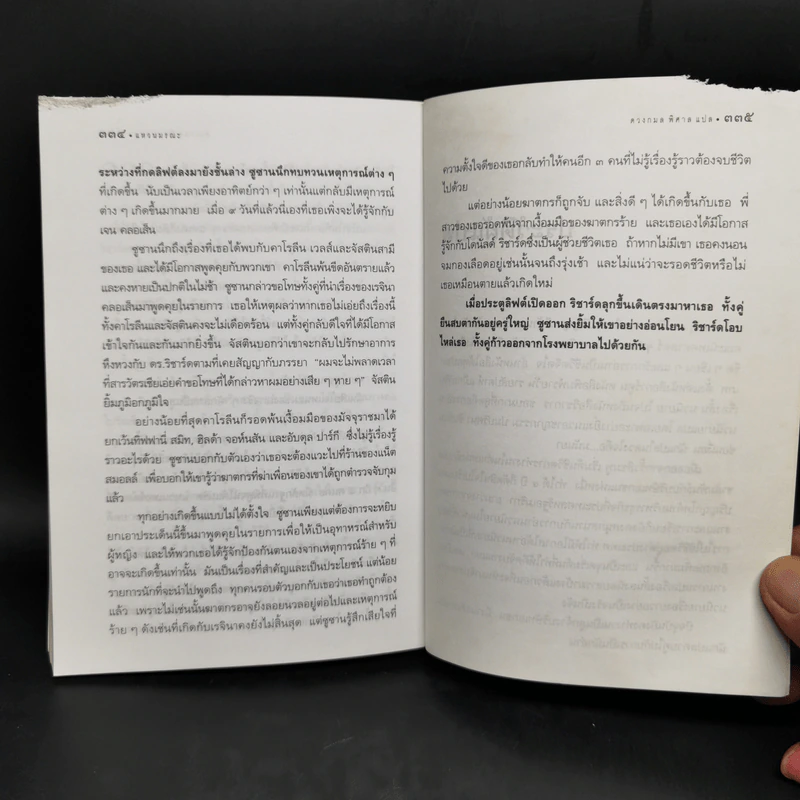 ๓๓๔ • แหวนมรณะ
ระหว่างที่กดลิฟต์ลงมายังชั้นล่าง ซูซานนึกทบทวนเหตุการณ์ต่าง ๆ
ที่เกิดขึ้น นับเป็นเวลาเพียงอาทิตย์กว่า ๆ เท่านั้นแต่กลับมีเหตุการณ์
ต่าง ๆ เกิดขึ้นมากมาย เมื่อ ๙ วันที่แล้วนี่เองที่เธอเพิ่งจะได้รู้จักกับ
เจน คลอเส็น
ซูซานนึกถึงเรื่องที่เธอได้พบกับคาโรลีน เวลส์และจัสตินสามี
ของเธอ และได้มีโอกาสพูดคุยกับพวกเขา คาโรลีนพ้นขีดอันตรายแล้ว
และคงหายเป็นปกติในไม่ช้า ซูซานกล่าวขอโทษทั้งคู่ที่นำเรื่องของเรจินา
คลอเส็นมาพูดคุยในรายการ เธอให้เหตุผลว่าหากเธอไม่เอ่ยถึงเรื่องนี้
ทั้งคาโรลีนและจัสตินคงจะไม่เดือดร้อน แต่ทั้งคู่กลับดีใจที่ได้มีโอกาส
เข้าใจกันและกันมากยิ่งขึ้น จัสตินบอกว่าเขาจะกลับไปรักษาอาการ
หึงหวงกับ ดร.ริชาร์ดตามที่เคยสัญญากับภรรยา “ผมจะไม่พลาดเวลา
ที่สารวัตรเชียเอ่ยคำขอโทษที่ได้กล่าวหาผมอย่างเสีย ๆ หาย ๆ” จัสติน
ยิ้มภูมิอกภูมิใจ
อย่างน้อยที่สุดคาโรลีนก็รอดพ้นเงื้อมมือของมัจจุราชมาได้
ยกเว้นทิฟฟานี่ สมิท, ฮิลด้า จอห์นสัน และอับดุล ปาร์กี ซึ่งไม่รู้เรื่องรู้
ราวอะไรด้วย ซูซานบอกกับตัวเองว่าเธอจะต้องแวะไปที่ร้านของแน็ต
สมอลล์ เพื่อบอกให้เขารู้ว่าฆาตกรที่ฆ่าเพื่อนของเขาได้ถูกตำรวจจับกุม
แล้ว
ทุกอย่างเกิดขึ้นแบบไม่ได้ตั้งใจ ซูซานเพียงแต่ต้องการจะหยิบ
ยกเอาประเด็นนี้ขึ้นมาพูดคุยในรายการเพื่อให้เป็นอุทาหรณ์สำหรับ
ผู้หญิง และให้พวกเธอได้รู้จักป้องกันตนเองจากเหตุการณ์ร้าย ๆ ที่
อาจจะเกิดขึ้นเท่านั้น มันเป็นเรื่องที่สำคัญและเป็นประโยชน์ แต่น้อย
รายการนักที่จะนำไปพูดถึง ทุกคนรอบตัวบอกกับเธอว่าเธอทำถูกต้อง
แล้ว เพราะไม่เช่นนั้นฆาตกรอาจยังลอยนวลอยู่ต่อไปและเหตุการณ์
ร้าย ๆ ดังเช่นที่เกิดกับเรจินาคงยังไม่สิ้นสุด แต่ซูซานรู้สึกเสียใจที่
ดวงกมล พิศาล แปล • ๓๓๕
ความตั้งใจดีของเธอกลับทำให้คนอีก ๓ คนที่ไม่รู้เรื่องรู้ราวต้องจบชีวิต
ไปด้วย
แต่อย่างน้อยฆาตกรก็ถูกจับ และสิ่งดี ๆ ได้เกิดขึ้นกับเธอ พี่
สาวของเธอรอดพ้นจากเงื้อมมือของฆาตกรร้าย และเธอเองได้มีโอกาส
รู้จักกับโดนัลด์ ริชาร์ดซึ่งเป็นผู้ช่วยชีวิตเธอ ถ้าหากไม่มีเขา เธอคงนอน
จมกองเลือดอยู่เช่นนั้นจนถึงรุ่งเช้า และไม่แน่ว่าจะรอดชีวิตหรือไม่
เธอเหมือนตายแล้วเกิดใหม่
เมื่อประตูลิฟต์เปิดออก ริชาร์ดลุกขึ้นเดินตรงมาหาเธอ ทั้งคู่
ยืนสบตากันอยู่ครู่ใหญ่ ซูซานส่งยิ้มให้เขาอย่างอ่อนโยน ริชาร์ดโอบ
ไหล่เธอ ทั้งคู่ก้าวออกจากโรงพยาบาลไปด้วยกัน